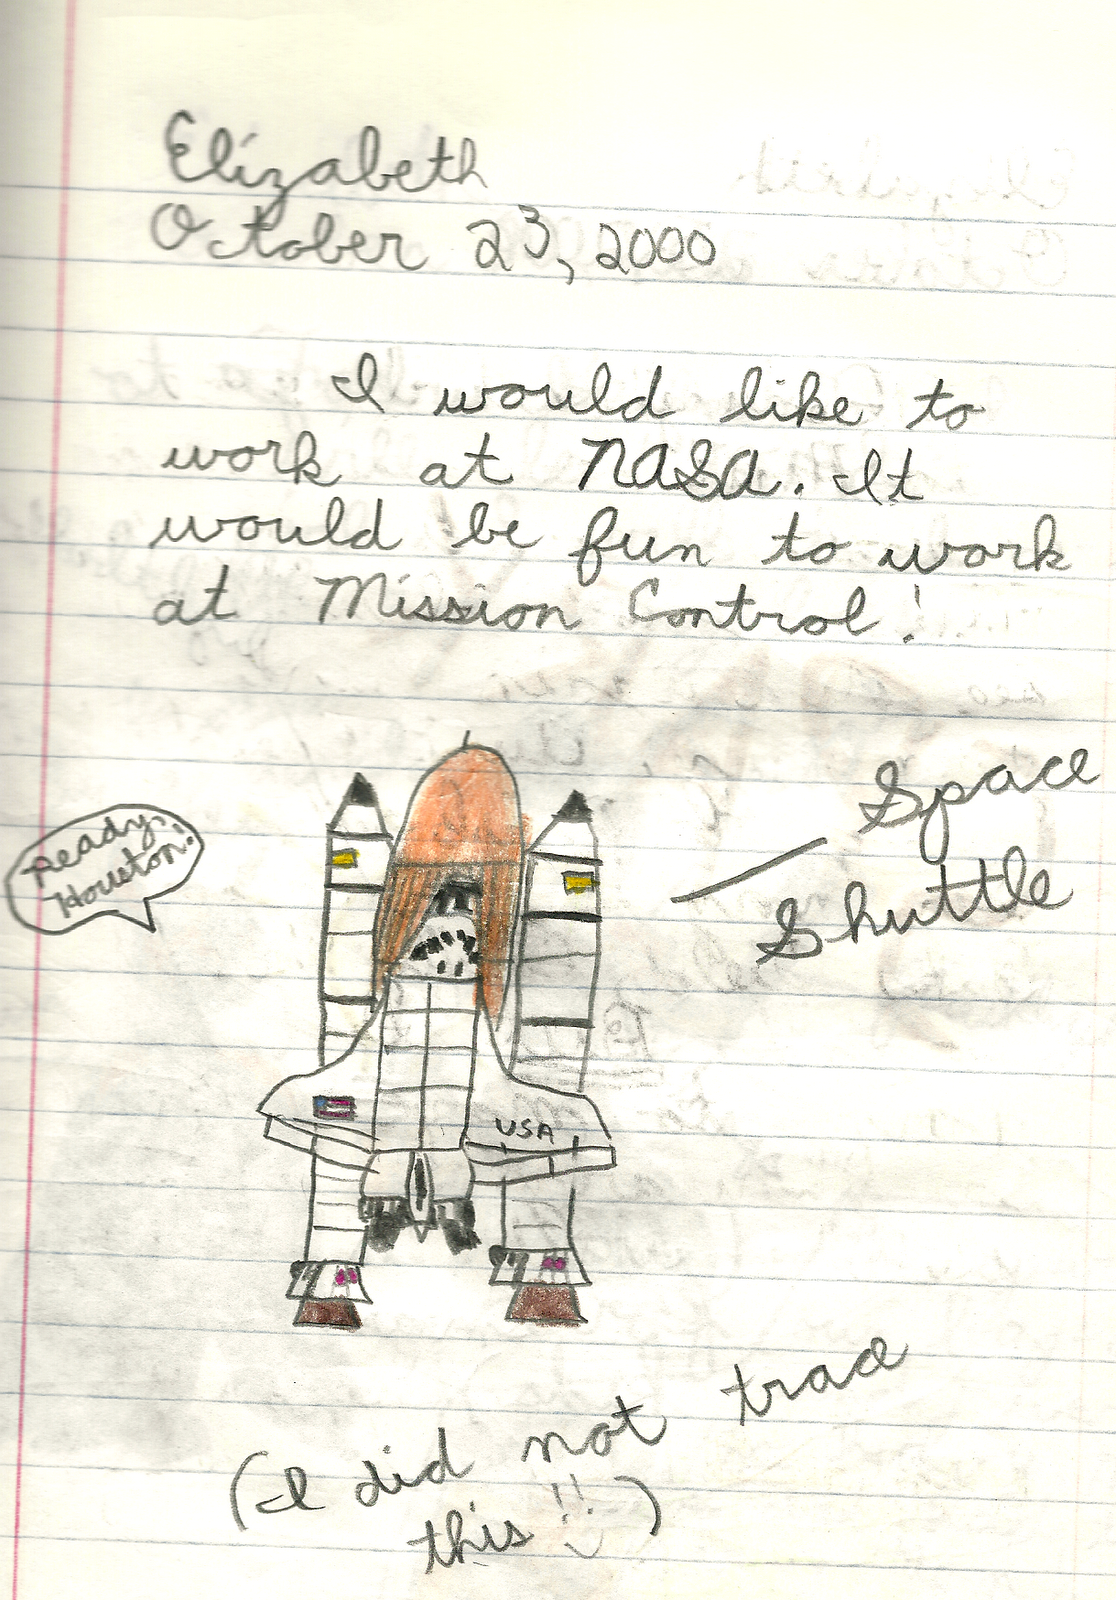 Elizabeth
October 23, 2000
I would like to
work at NASA. It
would be fun to work
at Mission Control!
Ready,
Houston!
Space
Shuttle
USA
(I did not trace
this!!)